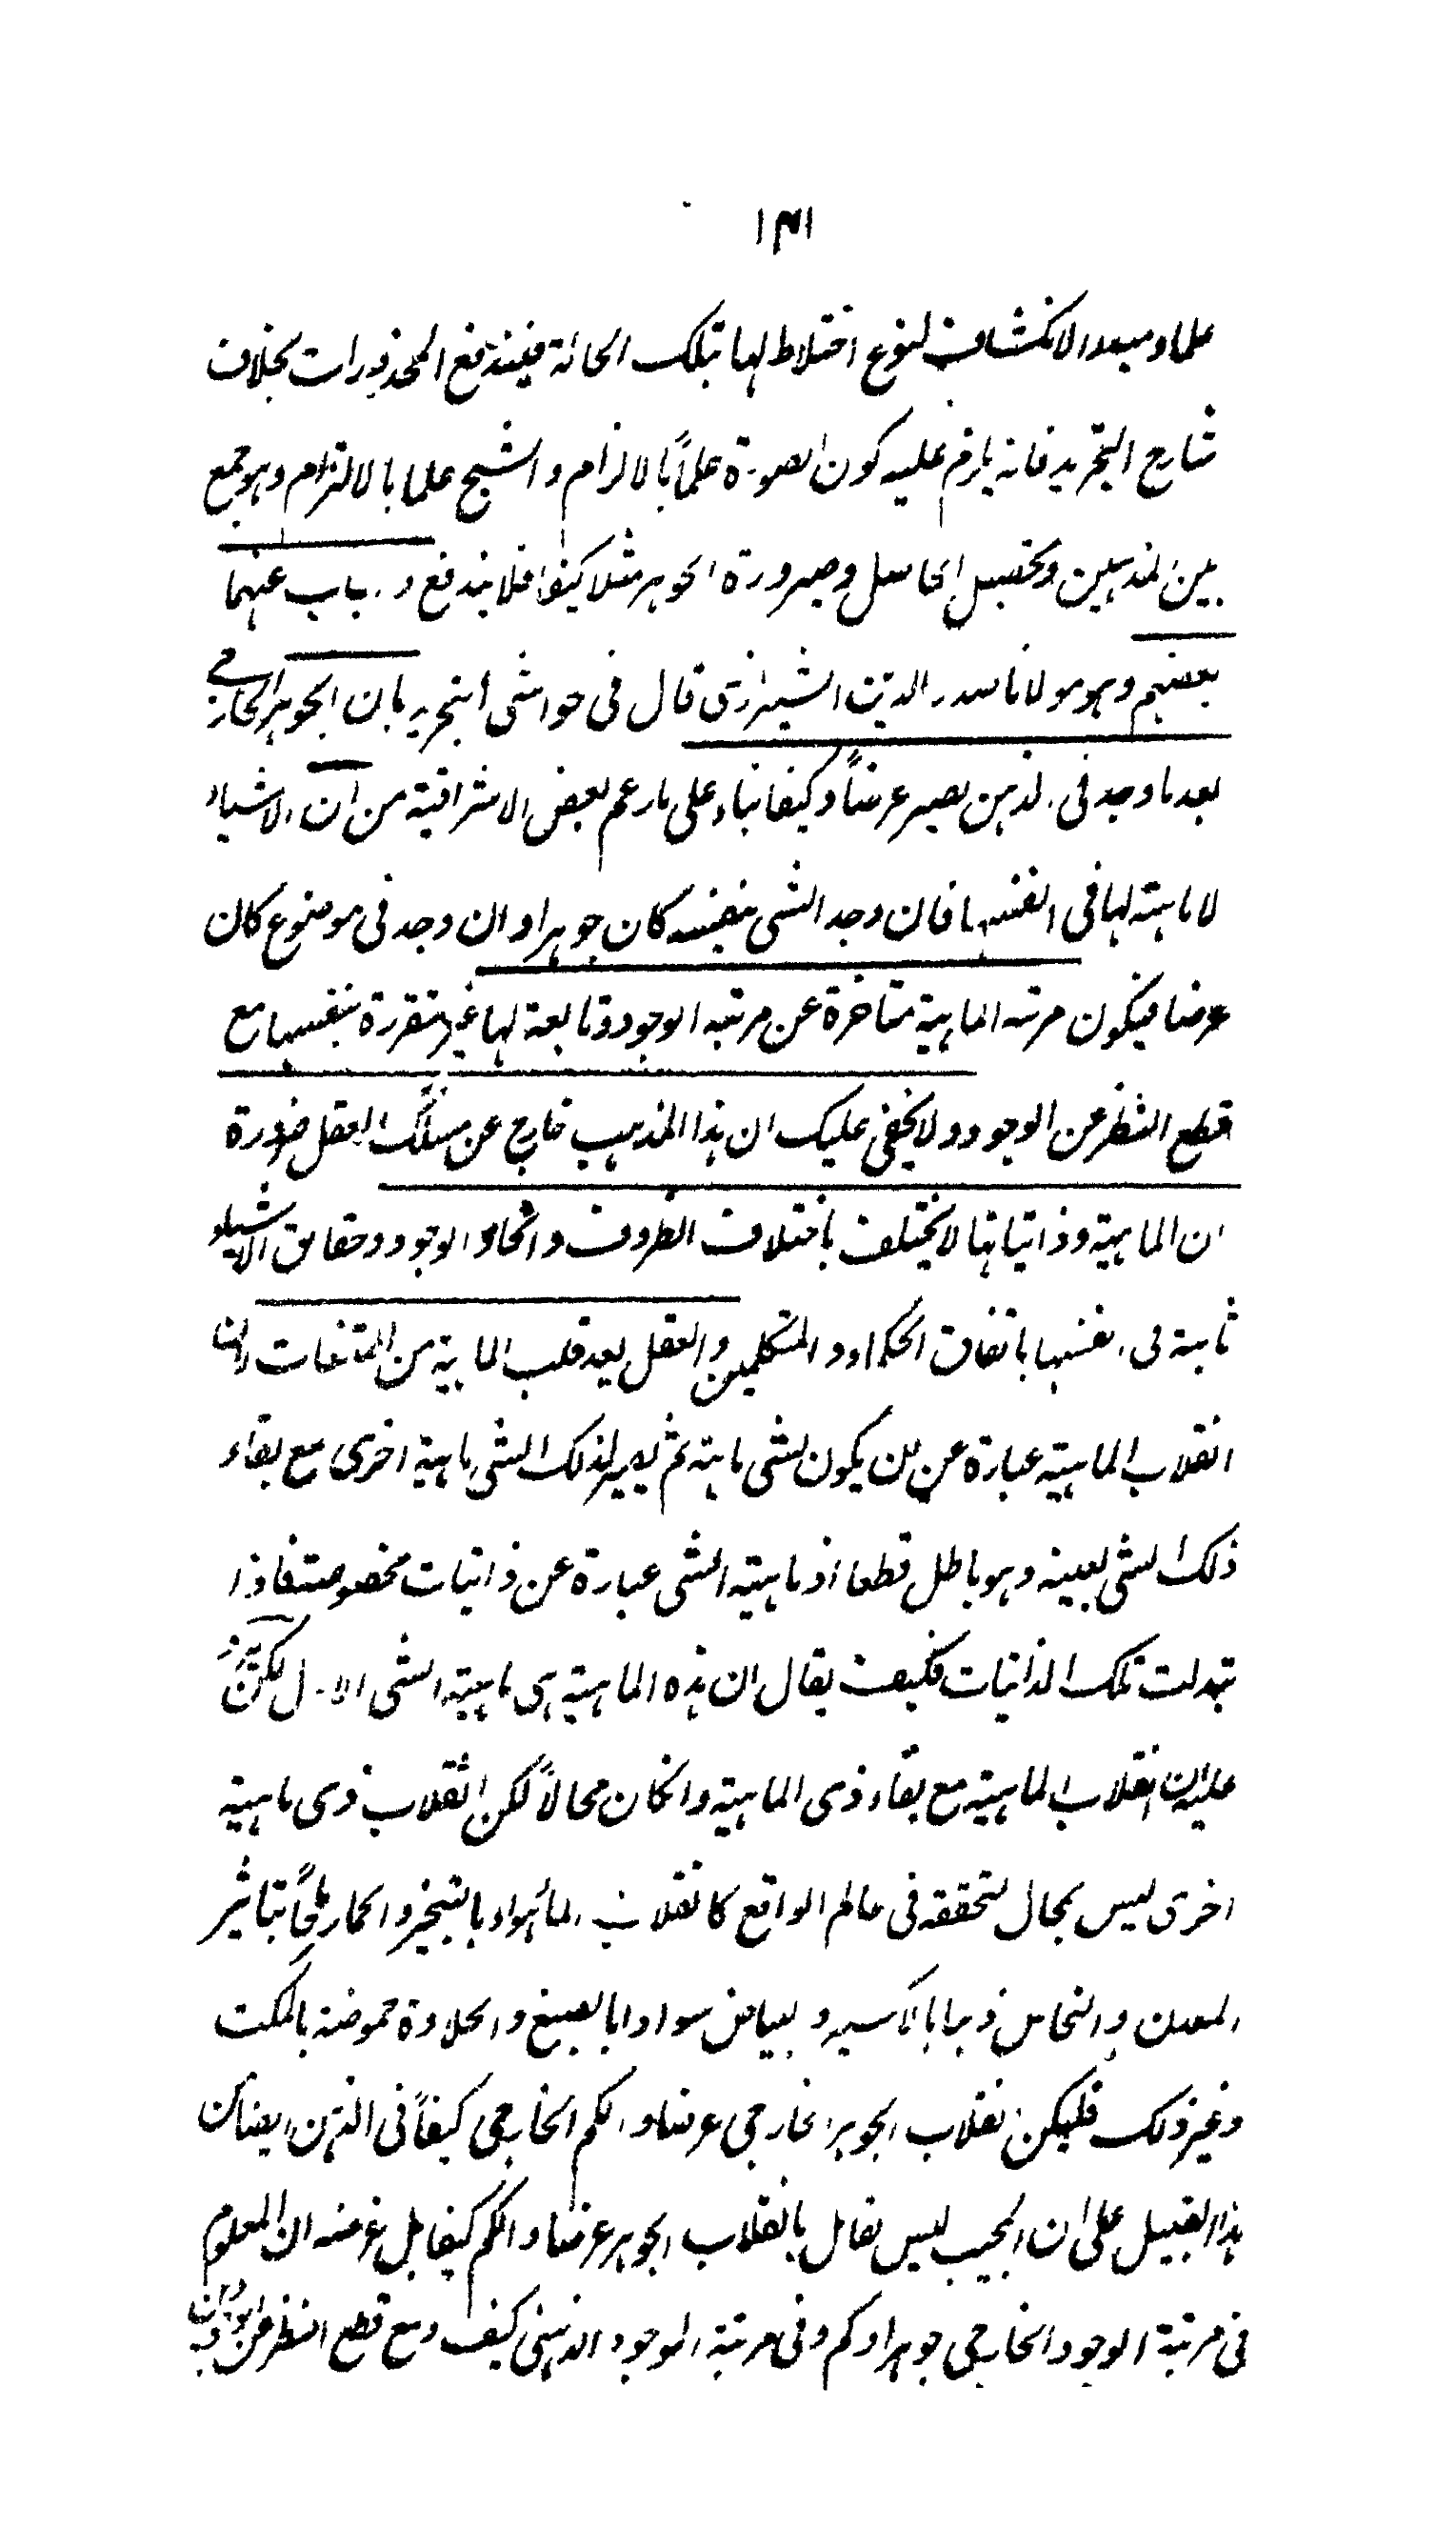 ۱۴۱
علما ومبدء الانكشاف لنوع اختلاط لها بتلك الحالة فيندفع المحذورات بخلاف
شارح التجريد فانه يلزم عليه كون الصورة علماً بالالزام والشبح علما بالالتزام وهو جمع
بين المذهبين وتحصيل الحاصل وصيرورة الجوهر مثلا كيفا فلا يندفع واجاب عنهما
بعضهم وهو مولانا صدر الدين الشيرازى قال فى حواشى التجريد بان الجوهر الخارجى
بعد ما وجد فى الذهن يصير عرضاً وكيفا بناء على ما زعم بعض الاشراقية من ان الاشياء
لا ماهية لها فى انفسها فان وجد الشى بنفسه كان جوهرا وان وجد فى موضوع كان
عرضا فيكون مرتبة الماهية متاخرة عن مرتبه الوجود وتابعة لها غير متقررة بنفسها مع
قطع النظر عن الوجود ولا يخفى عليك ان هذا المذهب خارج عن مسلك العقل ضرورة
ان الماهية وذاتياتها لا يختلف باختلاف الظروف وانحاء الوجود وحقايق الاشياء
ثابتة فى انفسها باتفاق الحكماء والمتكلمين والعقل يعد قلب الماهية من الممتنعات لان
انقلاب الماهية عبارة عن ان يكون لشى ماهية ثم يصير لذلك الشى ماهية اخرى مع بقاء
ذلك الشى بعينه وهو باطل قطعا اذ ماهية الشى عبارة عن ذاتيات مخصوصة فاذا
تبدلت تلك الذاتيات فكيف يقال ان هذه الماهية هى ماهية الشى الاول لكن يرد
عليه ان انقلاب الماهية مع بقاء ذى الماهية وانكان محالاً لكن انقلاب ذى ماهية
اخرى ليس بمحال لتحققه فى عالم الواقع كانقلاب الماء هواء بالتبخير والحمار ملحاً بتاثير
المعدن والنحاس ذهبا بالاكسير والبياض سوادا بالصبغ والحلاوة حموضة بالمكث
وغير ذلك فليكن انقلاب الجوهر الخارجى عرضا والكم الخارجى كيفاً فى الذهن ايضا من
هذا القبيل على ان المجيب ليس بقائل بانقلاب الجوهر عرضا والكم كيفا بل غرضه ان المعلوم
فى مرتبة الوجود الخارجى جوهر او كم وفى مرتبة الموجود الذهنى كيف ومع قطع النظر عن